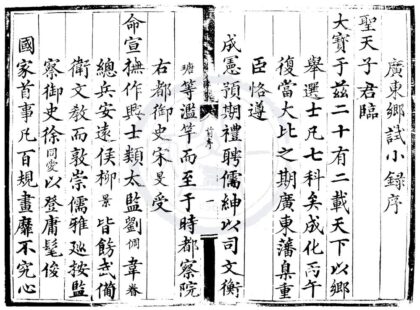 廣東鄉試小錄序
聖天子君臨
大寶于兹二十有二載天下以鄉
舉選士凡七科矣成化丙午
復當大比之期廣東藩臬重
臣恪遵
成憲預期禮聘儒紳以司文衡
前序
一
等濫竽而至于時都察院
右都御史宋旻受
命宣撫作興士類太監劉倜韋眷
總兵安遠侯柳景皆飭武備
衛文教而敦崇儒雅廵按監
察御史徐同愛以登庸髦俊
國家首事凡百規畫靡不究心